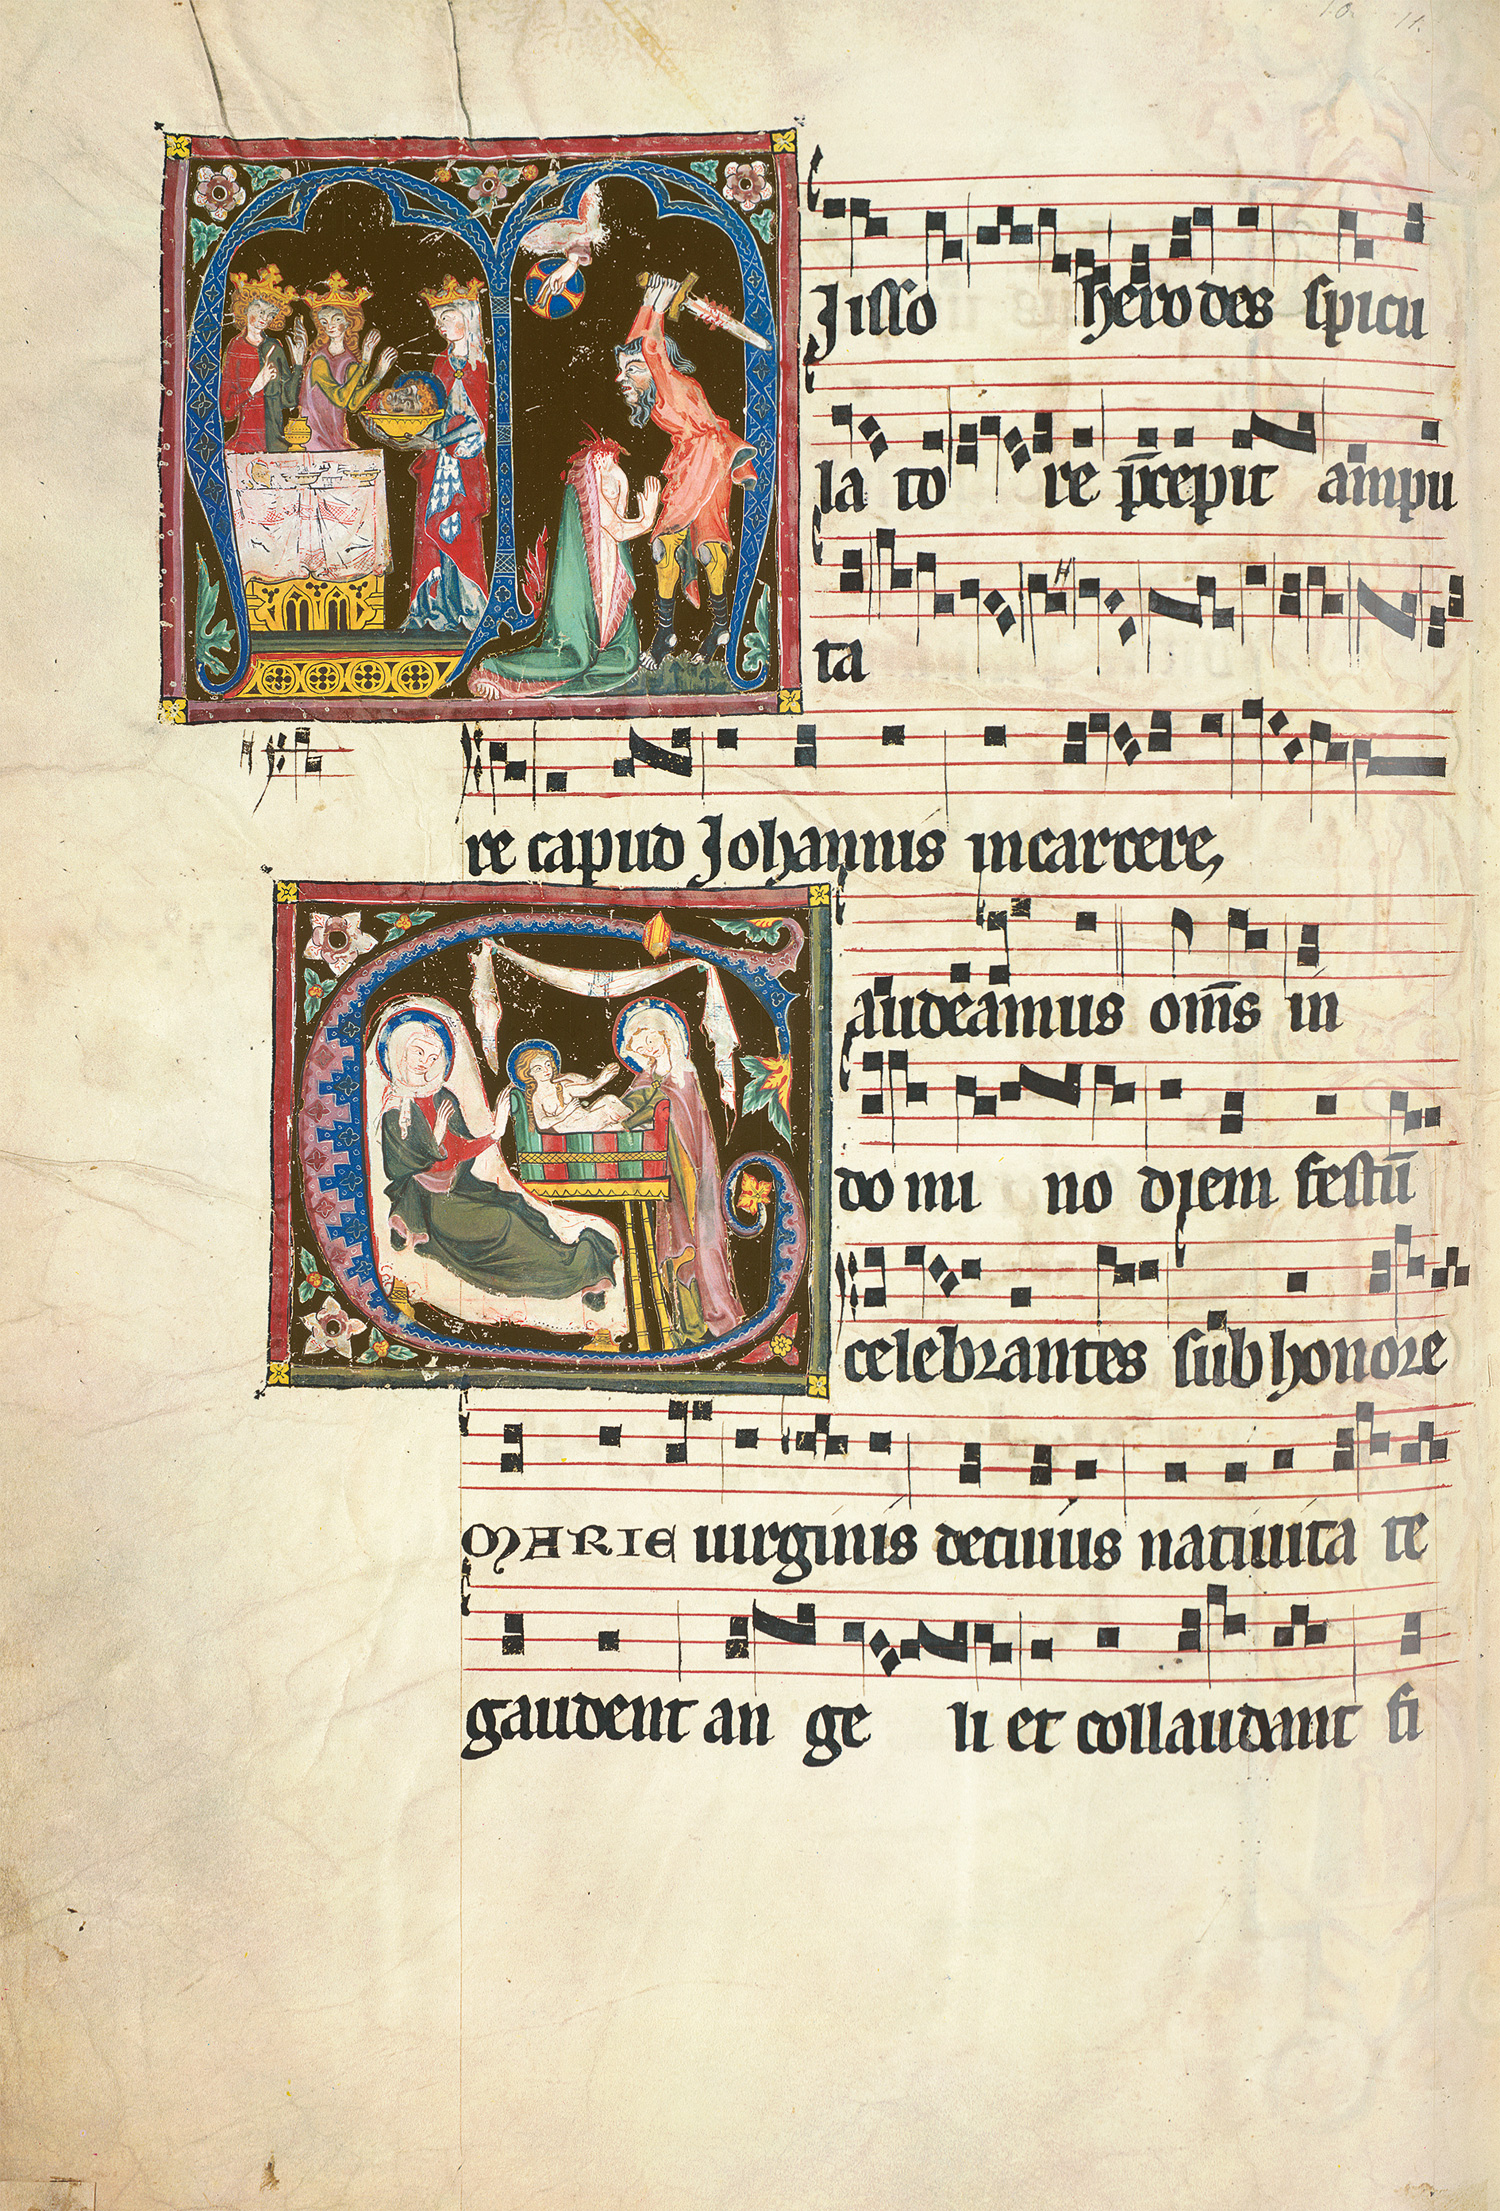 10 11.
Jisso herodes spicu
la to re p̄cepit ampu
ta
re capud Johannis in carcere,
audeamus om̄s in
do mi no diem festū
celebrantes sub honore
MARIE uirginis de cuius natiuita te
gaudent an ge li et collaudant fi